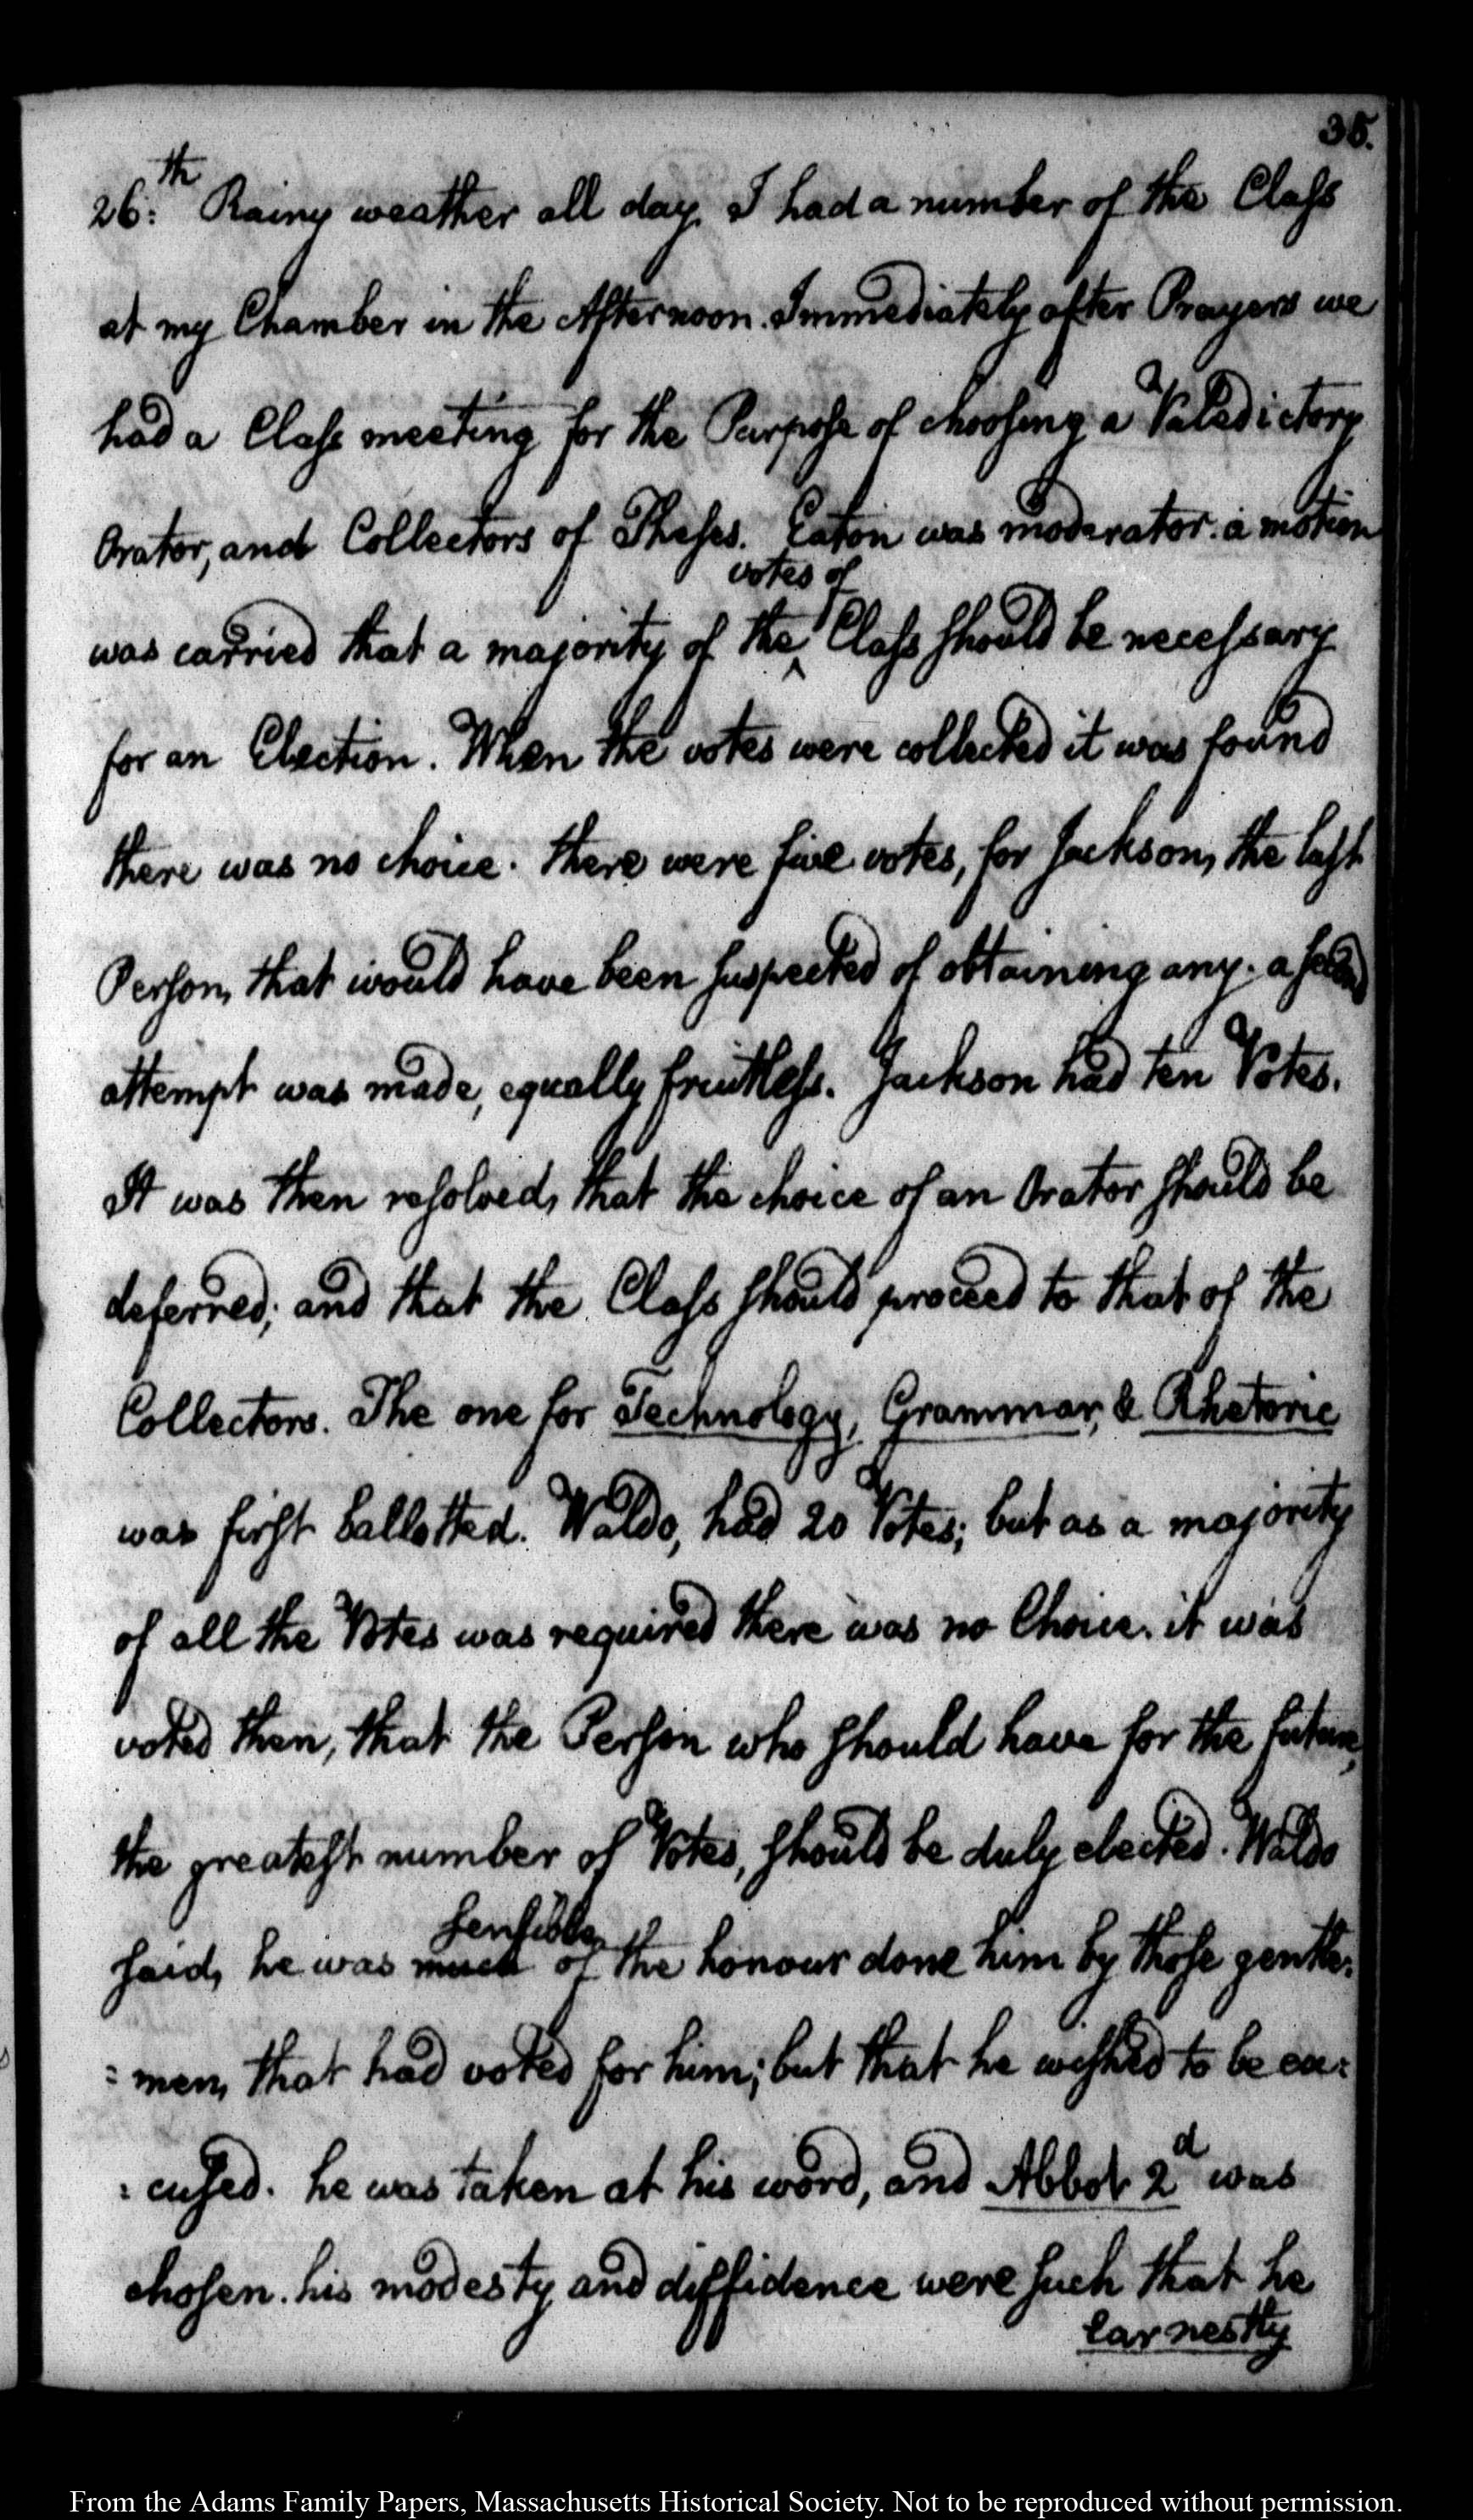 35.
26:th Rainy weather all day. I had a number of the Claſs
at my Chamber in the Afternoon. Immediately after Prayers we
had a Claſs meeting, for the Purpoſe of chooſing a Valedictory
Orator, and Collectors of Theſes. Eaton was moderator. a motion
votes of
was carried that a majority of the ^ Claſs ſhould be neceſsary
for an Election. When the votes were collected it was found
there was no choice. there were five votes, for Jackson, the laſt
Perſon, that would have been ſuspected of obtaining any. a ſecond
attempt was made, equally fruitleſs. Jackson had ten Votes.
It was then reſolved, that the choice of an Orator ſhould be
deferred; and that the Claſs ſhould proceed to that of the
Collectors. The one for Technology, Grammar, & Rhetoric
was firſt ballotted. Waldo, had 20 Votes; but as a majority
of all the Votes was required there was no Choice. it was
voted then, that the Perſon who ſhould have for the future,
the greateſt number of Votes, ſhould be duly elected. Waldo
ſenſible
ſaid, he was much of the honour done him by thoſe gentle:
: men, that had voted for him; but that he wiſhed to be ex:
: cuſed. he was taken at his word, and Abbot 2d was
choſen. his modesty and diffidence were ſuch that he
earnestly
From the Adams Family Papers, Massachusetts Historical Society. Not to be reproduced without permission.